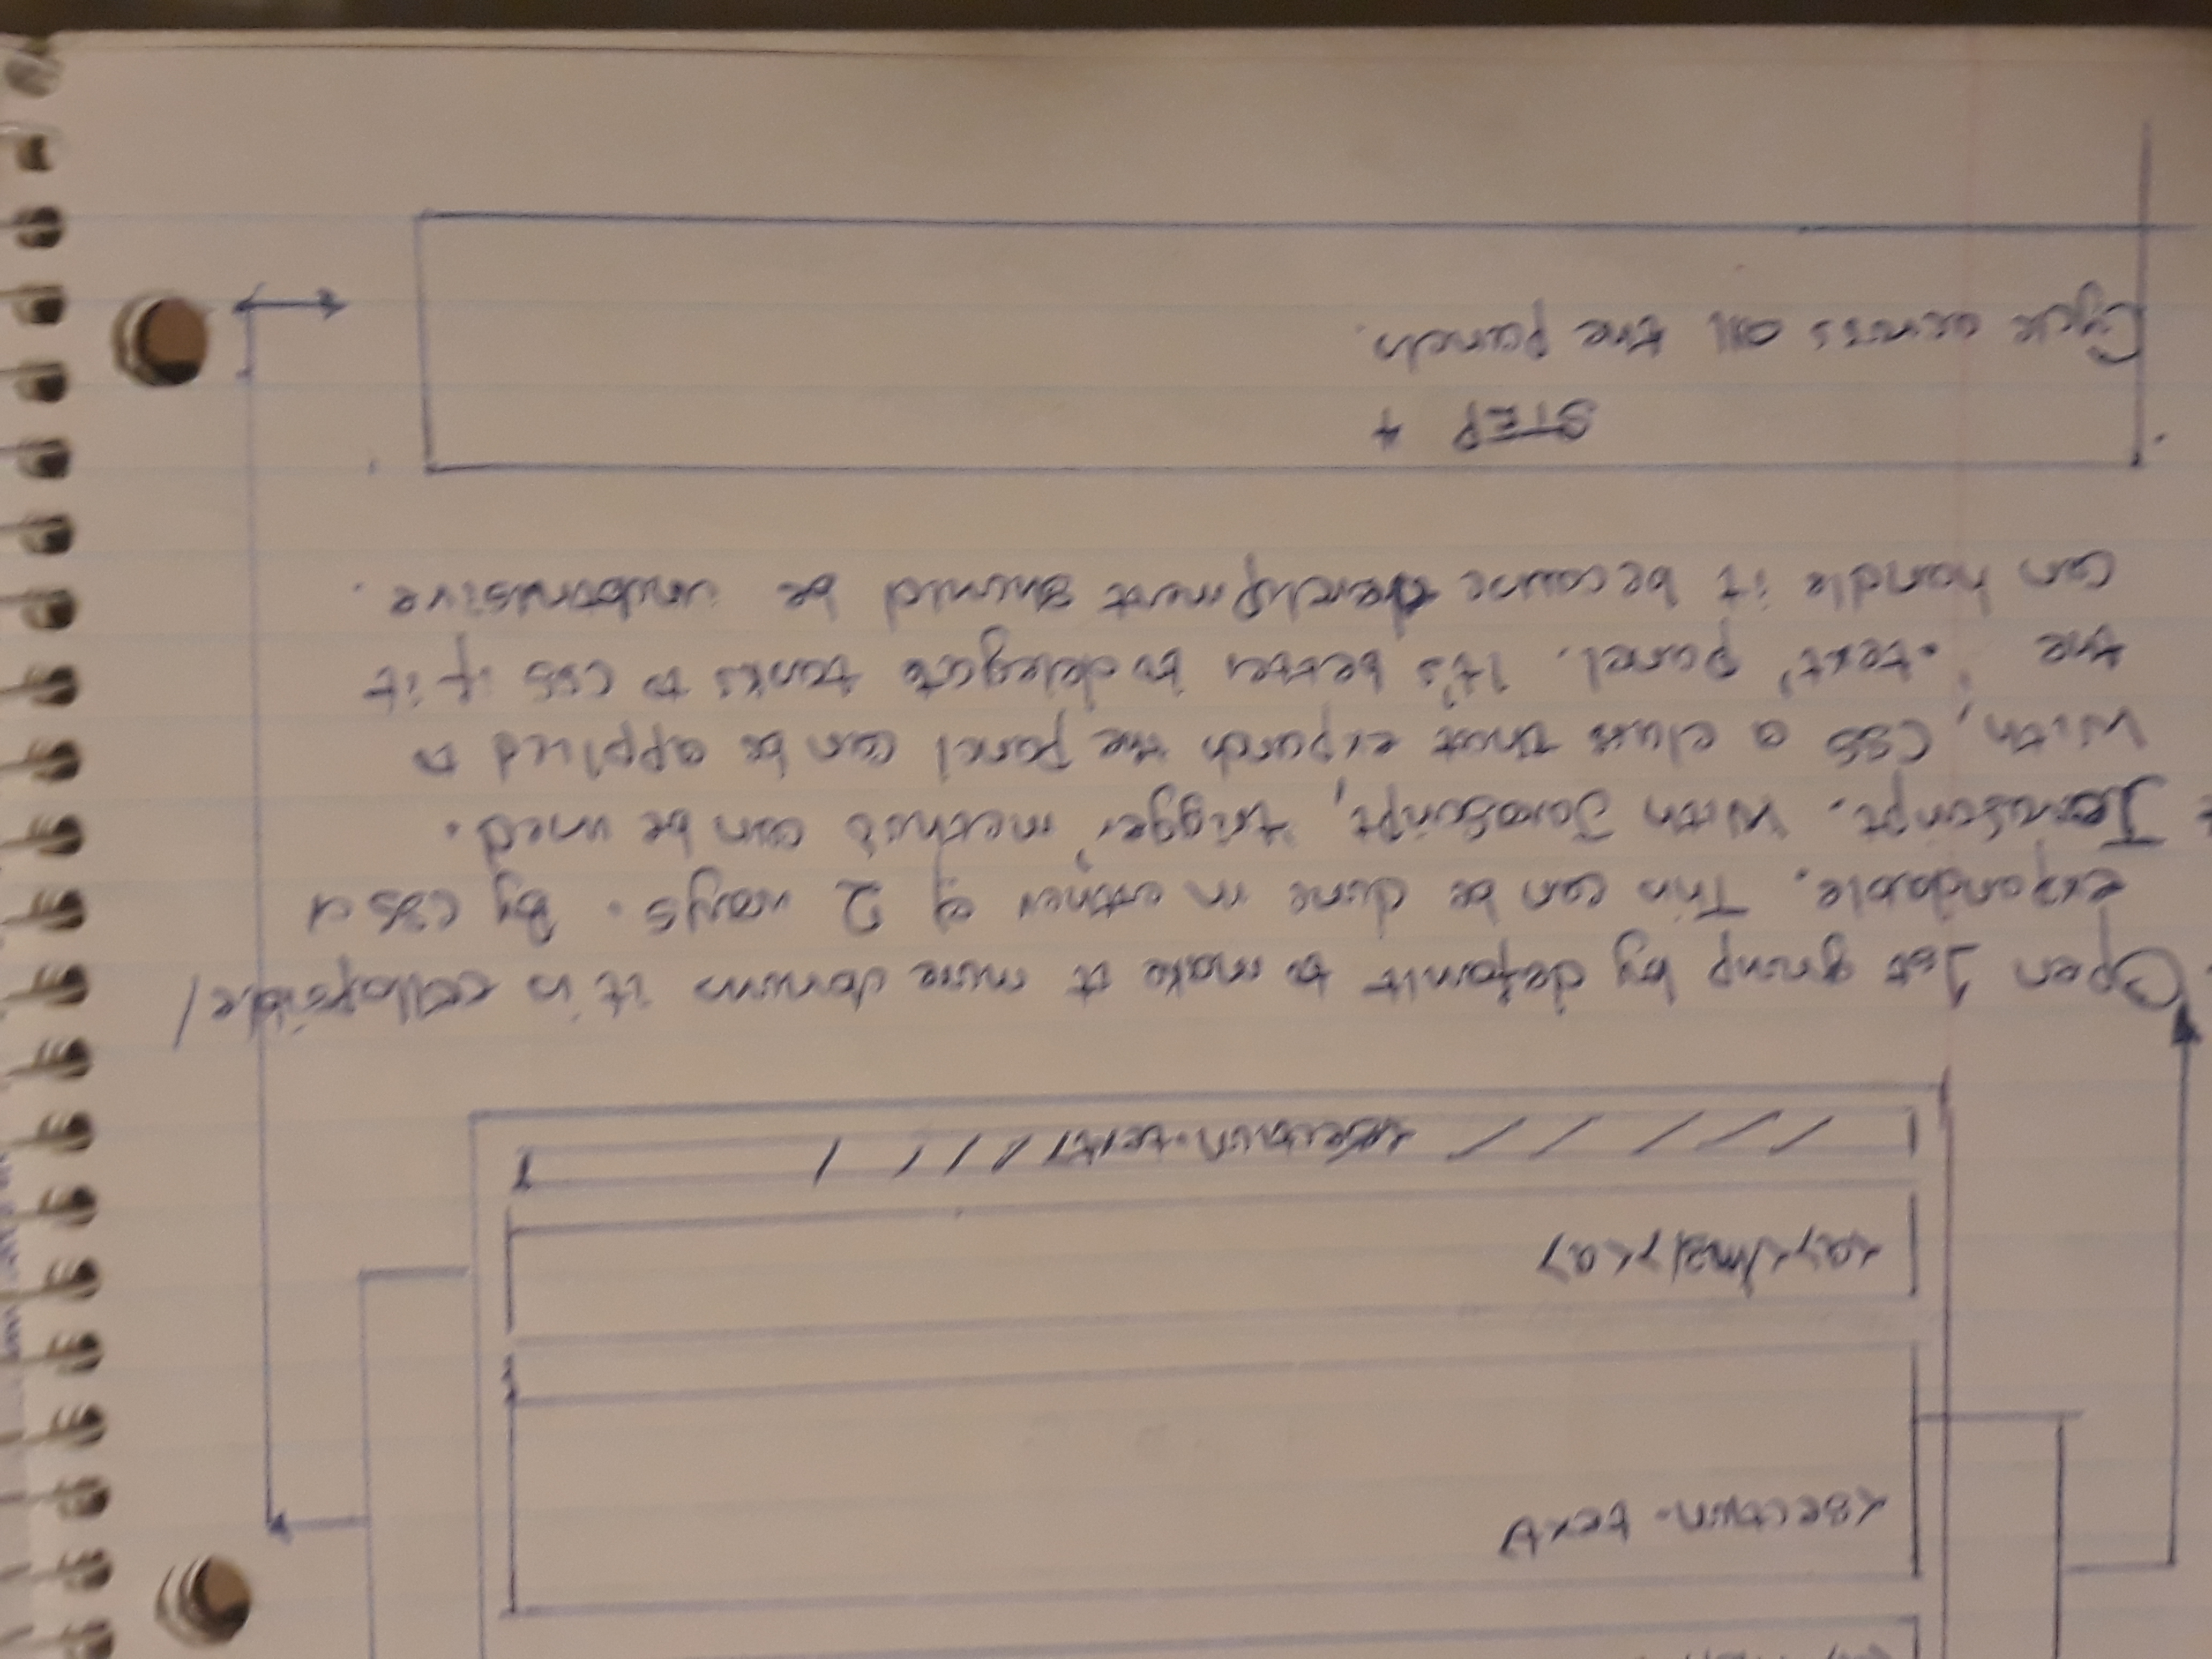 <section.text>
<a></h2><a>
<section.text>
Open 1st group by default to make it more obvious it is collapsible/
expandable. This can be done in either of 2 ways. By CSS or
JavaScript. With JavaScript, 'trigger' method can be used.
With, CSS a class that expands the panel can be applied to
the '.text' panel. It's better to delegate tasks to CSS if it
can handle it because development should be unobtrusive.
STEP 4
Cycle across all the panels.